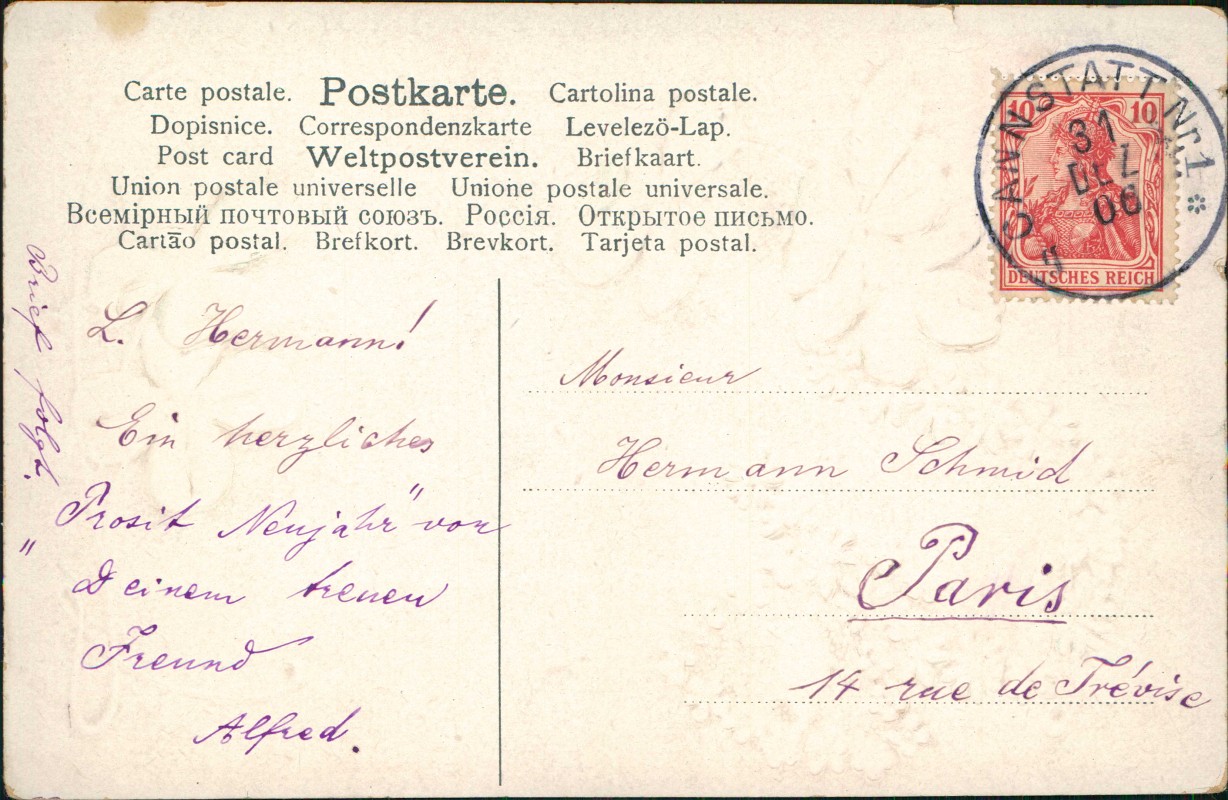 Carte postale. Postkarte. Cartolina postale.
Dopisnice. Correspondenzkarte Levelezö-Lap.
Post card Weltpostverein. Briefkaart.
Union postale universelle Unione postale universale.
Всемірный почтовый союзъ. Россія. Открытое письмо.
Cartão postal. Brefkort. Brevkort. Tarjeta postal.
CANNSTATT Nr.1 *
31
DEZ
06
10 10
DEUTSCHES REICH
Brief folgt.
L. Hermann!
Ein herzliches
„Prosit Neujahr" von
Deinem treuen
Freund
Alfred.
Monsieur
Hermann Schmid
Paris
14 rue de Trévise